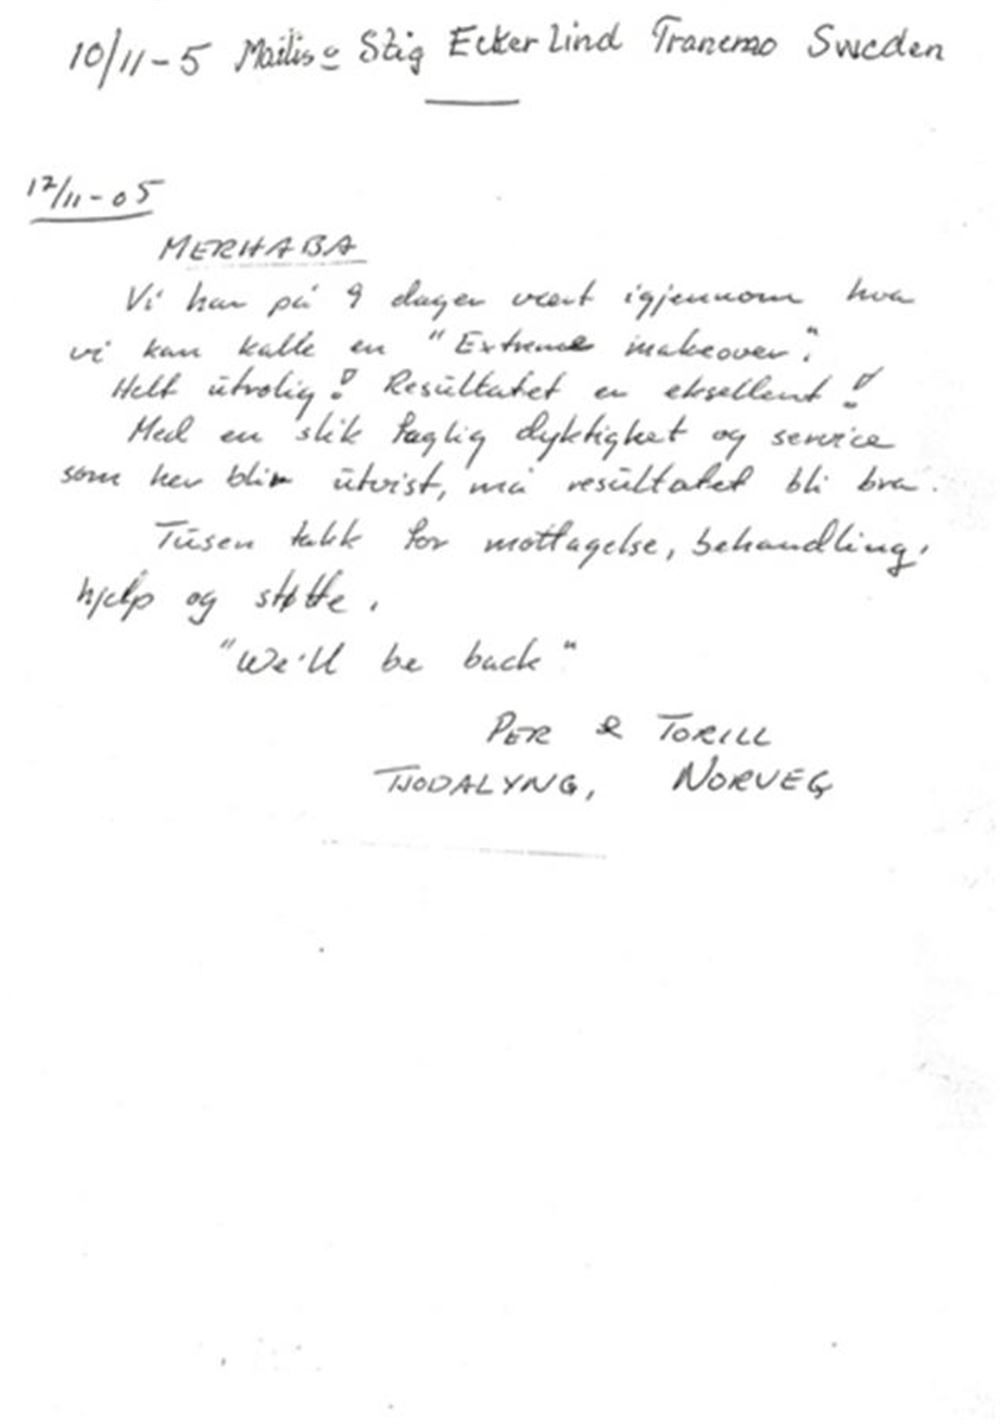 10/11-5 Mailis o Stig Eckerlind Tranemo Sweden
12/11-05
MERHABA
Vi har på 9 dager vært igjennom hva
vi kan kalle en "Extreme makeover".
Helt utrolig! Resultatet er eksellent!
Med en slik faglig dyktighet og service
som her blir utvist, må resultatet bli bra.
Tusen takk for mottagelse, behandling,
hjelp og støtte.
"We'll be back"
PER & TORILL
TJODALYNG, NORVEÇ